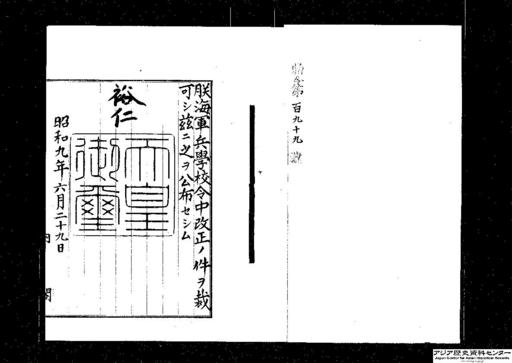 勅令第百九十九號
朕海軍兵學校令中改正ノ件ヲ裁
可シ茲ニ之ヲ公布セシム
裕仁
天皇御璽
昭和九年六月二十九日
内閣
アジア歴史資料センター
Japan Center for Asian Historical Records